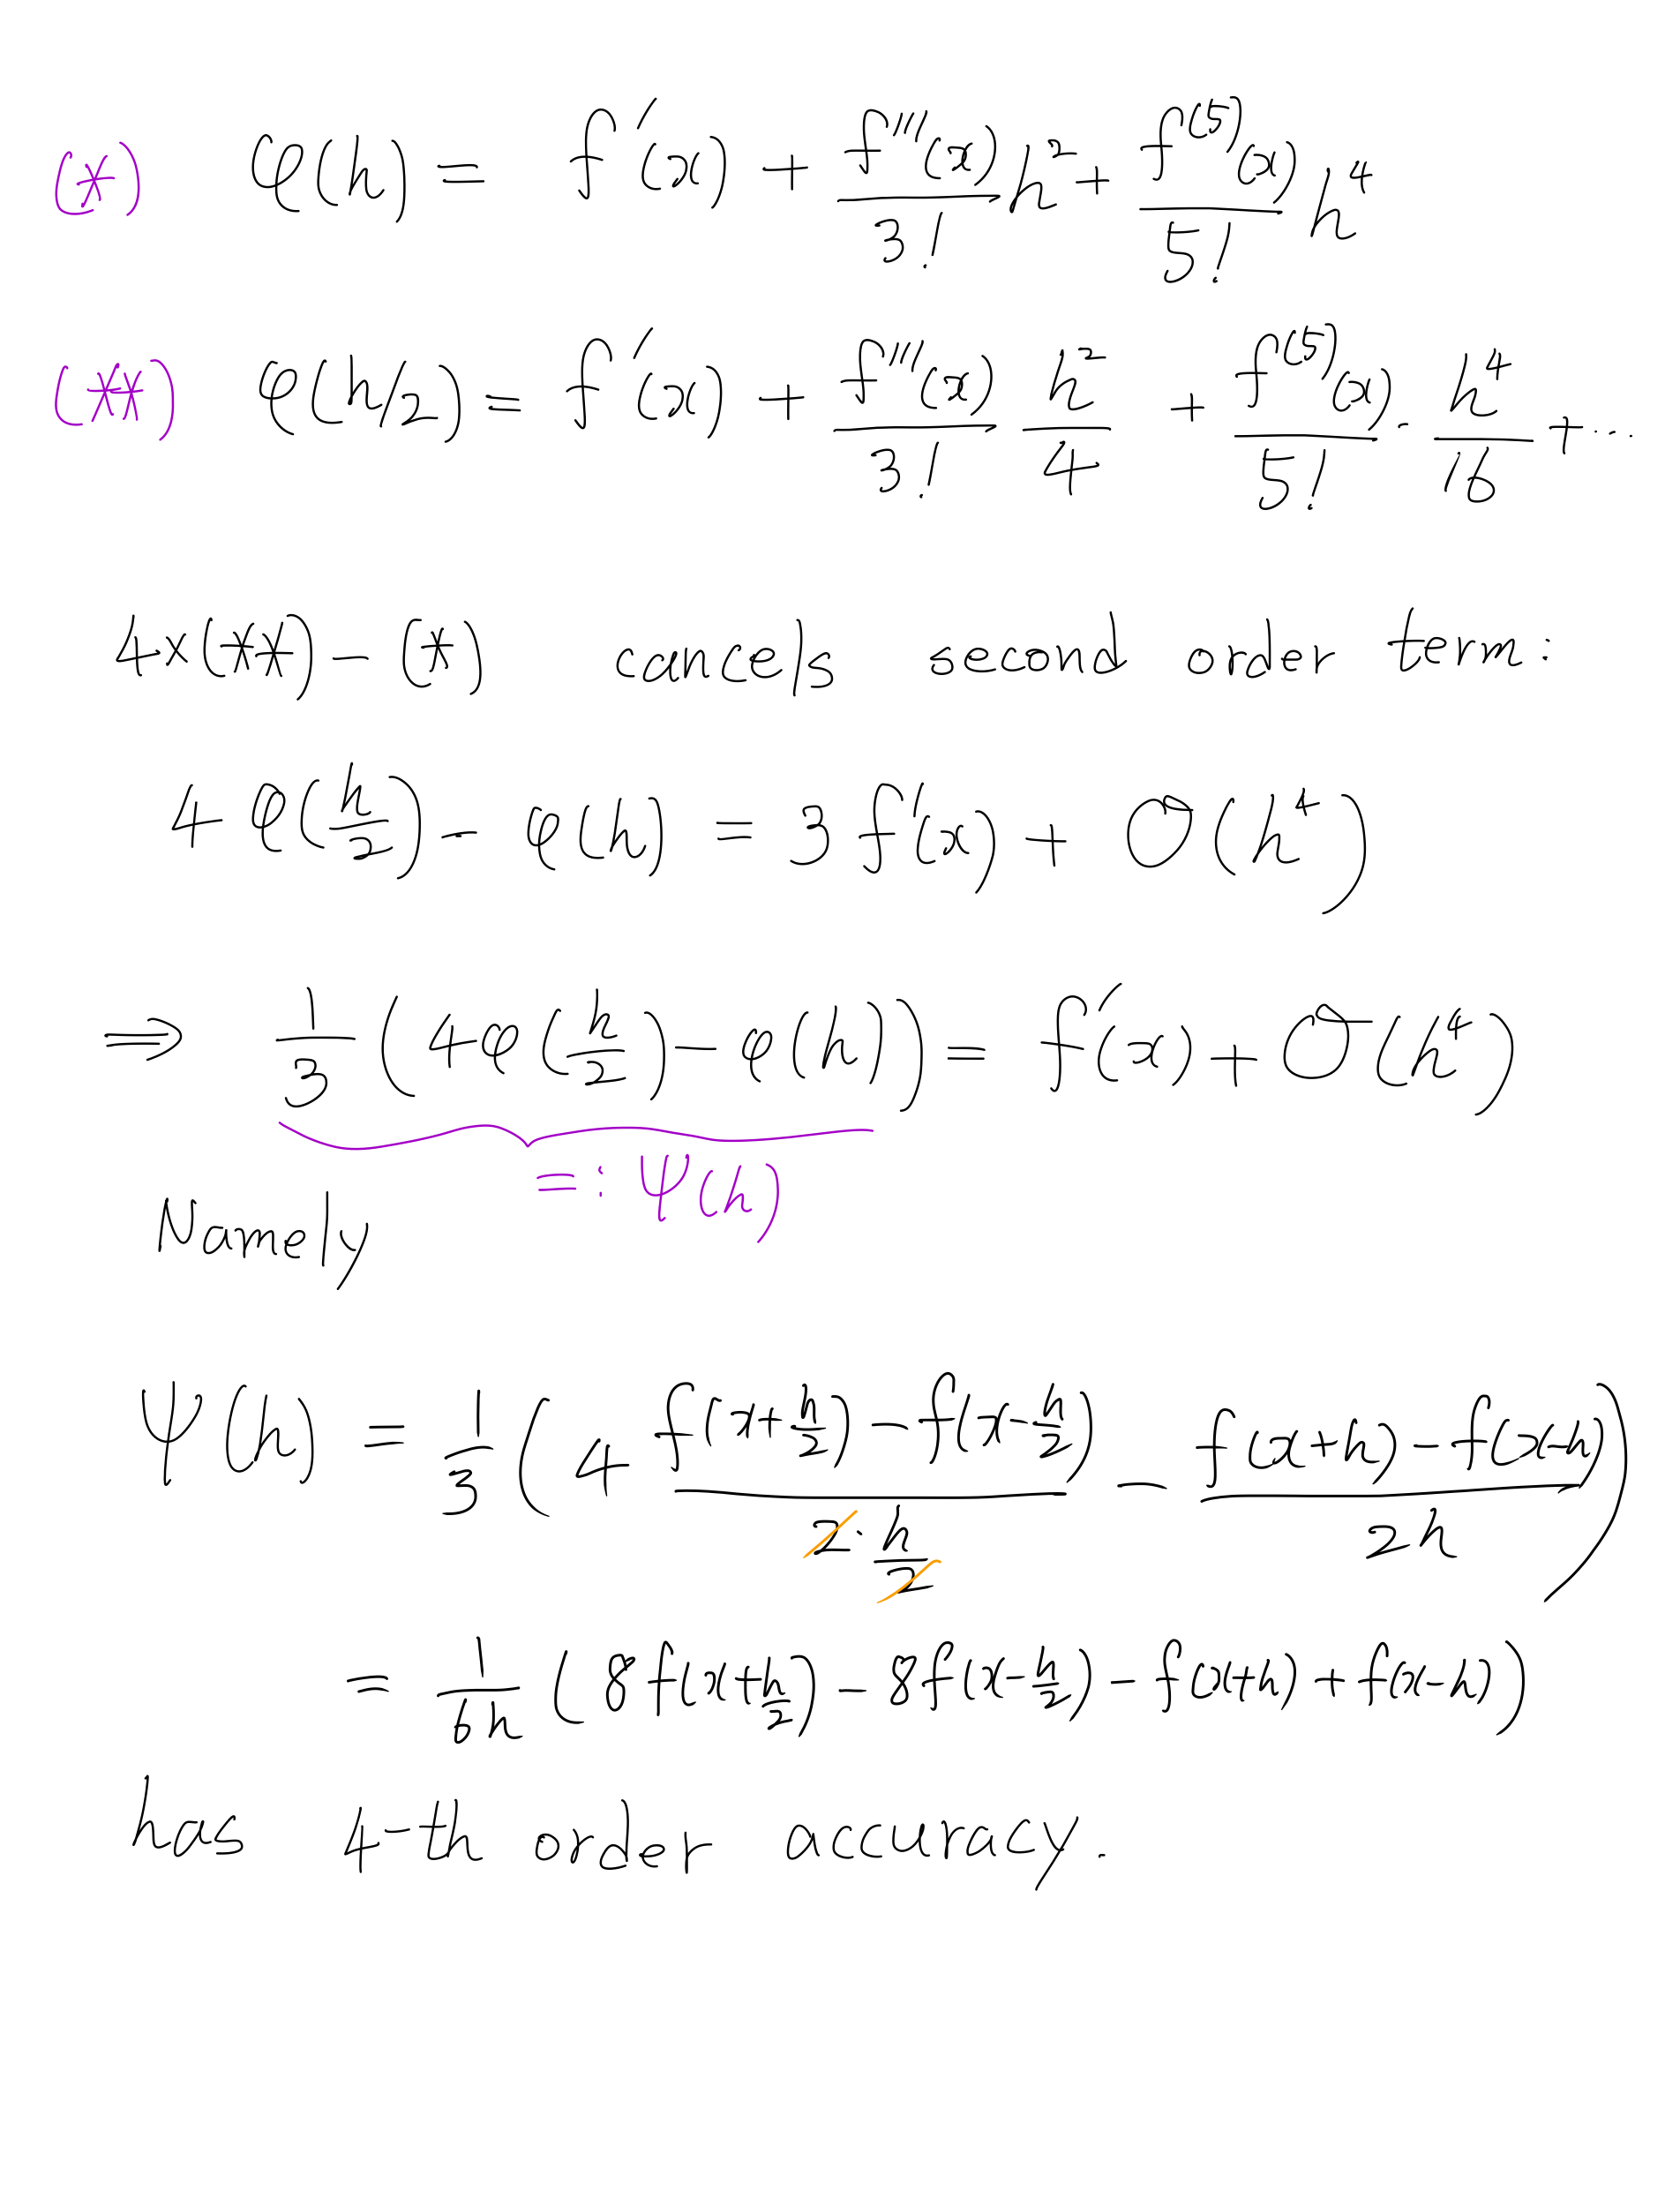 (*) φ(h) = f'(x) + f'''(x)/3! h² + f⁽⁵⁾(x)/5! h⁴
(**) φ(h/2) = f'(x) + f'''(x)/3! h²/4 + f⁽⁵⁾(x)/5! · h⁴/16 + ...
4×(**) − (*) cancels second order term:
4φ(h/2) − φ(h) = 3f'(x) + O(h⁴)
⇒ 1/3 (4φ(h/2) − φ(h)) = f'(x) + O(h⁴)
=: ψ(h)
Namely
ψ(h) = 1/3 (4 (f(x+h/2) − f(x−h/2))/(2·h/2) − (f(x+h) − f(x−h))/2h)
= 1/6h (8f(x+h/2) − 8f(x−h/2) − f(x+h) + f(x−h))
has 4-th order accuracy.